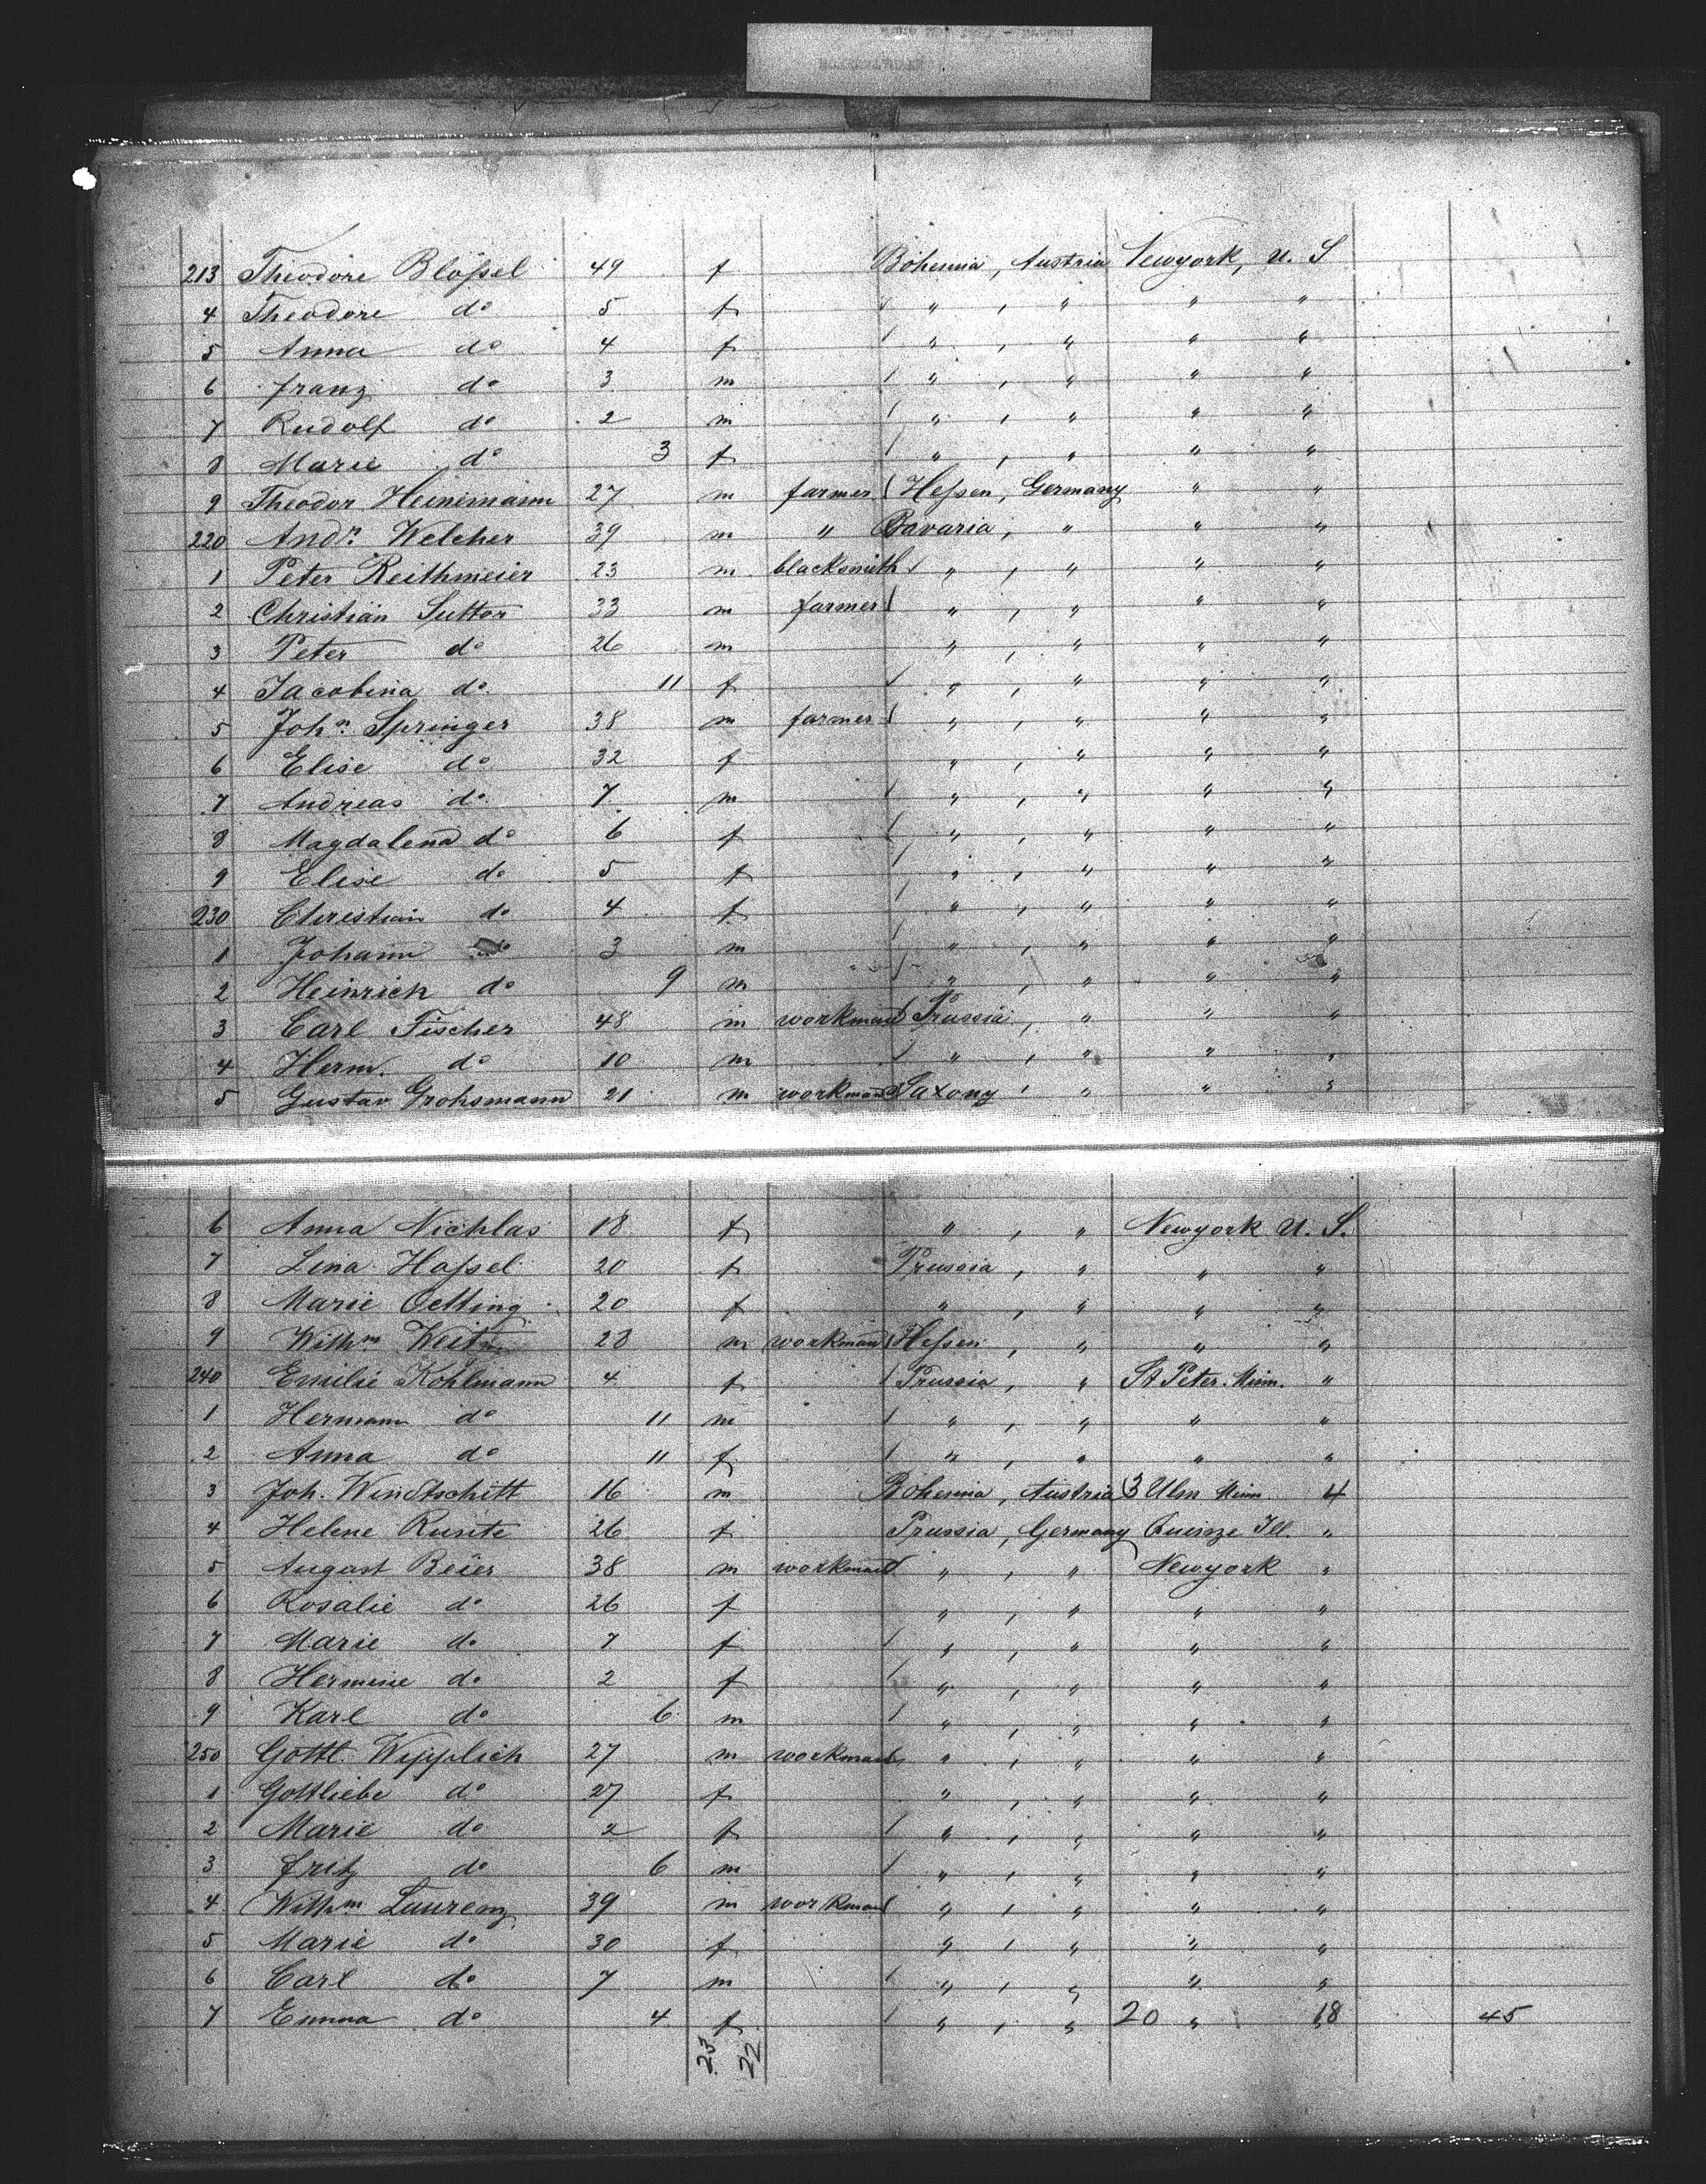 213 Theodore Bloßel 49 f Bohemia, Austria Newyork, U. S
4 Theodore do 5 f " , " " "
5 Anna do 4 f " , " " "
6 franz do 3 m " , " " "
7 Rudolf do 2 m " , " " "
8 Marie do 3 f " , " " "
9 Theodor Heinemann 27 m farmer Heßen, Germany " "
220 Andr. Welcher 39 m " Bavaria, " " "
1 Peter Reithmeier 23 m blacksmith " , " " "
2 Christian Suttor 33 m farmer " , " " "
3 Peter do 26 m " , " " "
4 Jacobina do 11 f " , " " "
5 John Springer 38 m farmer " , " " "
6 Elise do 32 f " , " " "
7 Andreas do 7 m " , " " "
8 Magdalena do 6 f " , " " "
9 Elise do 5 f " , " " "
230 Christian do 4 f " , " " "
1 Johann do 3 m " , " " "
2 Heinrich do 9 m " , " " "
3 Carl Fischer 48 m workman Prussia, " " "
4 Herm. do 10 m " , " " "
5 Gustav Grohsmann 21 m workman Saxony , " " "
6 Anna Nichlas 18 f " , " Newyork U. S.
7 Lina Haßel 20 f Prussia , " " "
8 Marie Oetting 20 f " , " " "
9 Wilhm 28 m workman Heßen , " " "
240 Emilie Kohlmann 4 f Prussia , " St Peter. Minn. "
1 Hermann do 11 m " , " " "
2 Anna do 11 f " , " " "
3 Joh. Windtschitt 16 m Bohemia, Austria 3 Ulm Minn. 4
4 Helene Runte 26 f Prussia, Germany Quinze Ill. "
5 August Beier 38 m workman " , " Newyork "
6 Rosalie do 26 f " , " " "
7 Marie do 7 f " , " " "
8 Hermine do 2 f " , " " "
9 Karl do 6 m " , " " "
250 Gottl. Wipplich 27 m workman " , " " "
1 Gottliebe do 27 f " , " " "
2 Marie do 2 f " , " " "
3 fritz do 6 m " , " " "
4 Wilhm Laurenz 39 m workman " , " " "
5 Marie do 30 f " , " " "
6 Carl do 7 m " , " " "
7 Emma do 4 f " , " 20 " 18 45
23 22